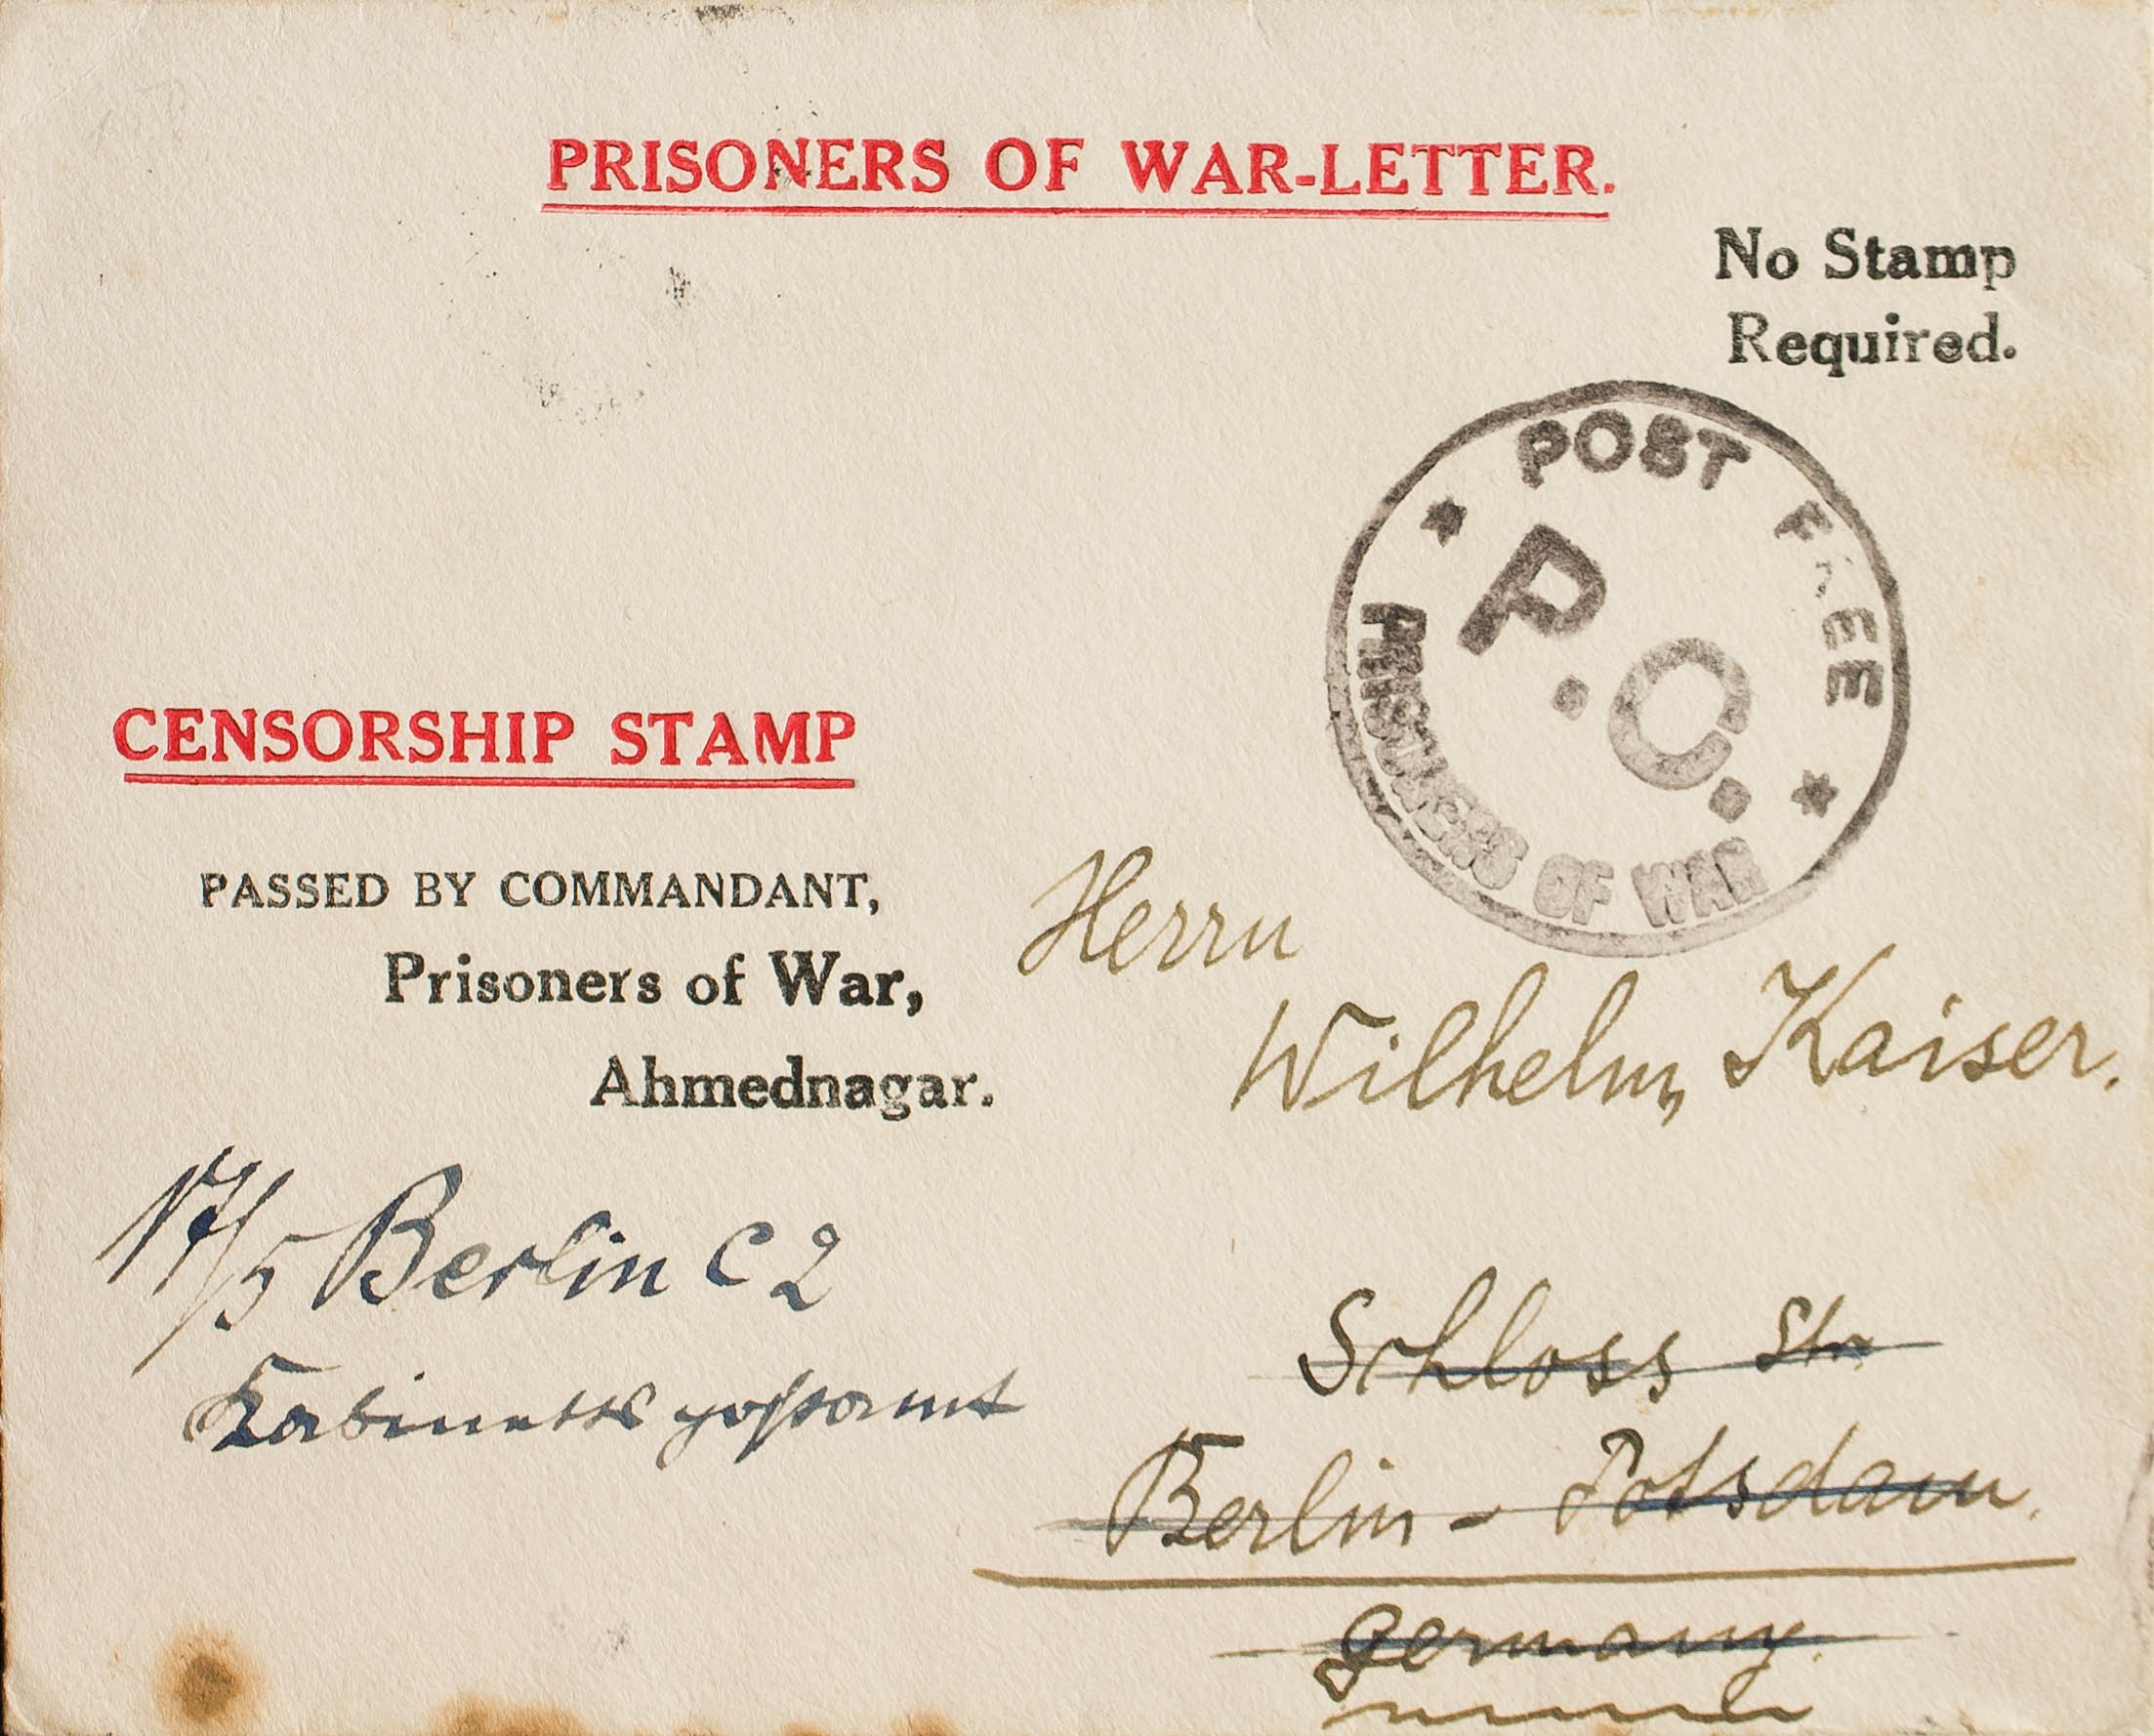 PRISONERS OF WAR-LETTER.
No Stamp
Required.
POST FREE
P.O.
PRISONERS OF WAR
CENSORSHIP STAMP
PASSED BY COMMANDANT,
Prisoners of War,
Ahmednagar.
Herrn
Wilhelm Kaiser.
17/5 Berlin C 2
Kabinettspostamt
Schloss Str
Berlin - Potsdam.
Germany.